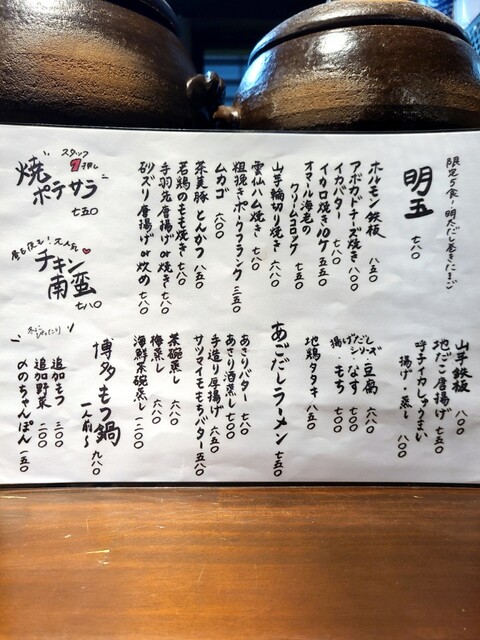 限定5食!明太だし巻きたまご
明五 七八〇
ホルモン鉄板 八五〇
アボカドチーズ焼き 八〇〇
イカバター 七八〇
イカ口焼き10ケ 五五〇
オマール海老の
クリームコロッケ 七五〇
山芋輪切り焼き 六八〇
雲仙ハム焼き 七八〇
粗挽きポークフランク 三五〇
ムカゴ 六〇〇
茶美豚とんかつ 八五〇
若鶏のもも焼き 七八〇
手羽先唐揚げor焼き 七八〇
砂ズリ唐揚げor炒め 七八〇
スタッフ
イチ押し
焼ポテサラ 七五〇
昼も夜も!大人気♥
チキン南蛮 七八〇
山芋鉄板 八〇〇
地だこ唐揚げ 七五〇
呼子イカしゅうまい
揚げ・蒸し 八〇〇
揚げだし
シリーズ
・豆腐 六八〇
・なす 七五〇
・もち 七〇〇
地鶏タタキ 八五〇
あごだしラーメン 七五〇
あさりバター 七八〇
あさり酒蒸し 七五〇
手造り厚揚げ 六八〇
サツマイモもちバター 五八〇
茶碗蒸し 六八〇
梅蒸し 六八〇
海鮮茶碗蒸し 一二〇〇
博多もつ鍋
一人前〜 九八〇
追加もつ 三〇〇
追加野菜 二〇〇
〆のちゃんぽん 一五〇